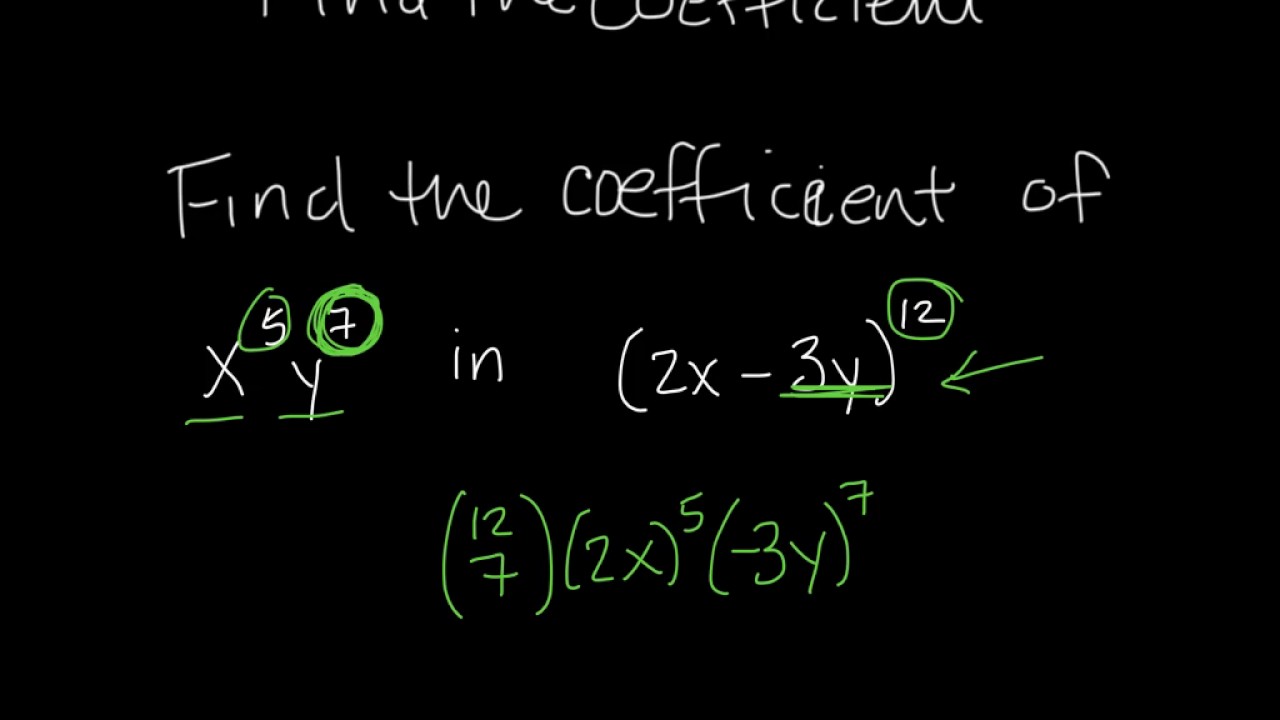 Find the coefficient
Find the coefficient of
x^5 y^7 in (2x - 3y)^12
(12 7)(2x)^5(-3y)^7